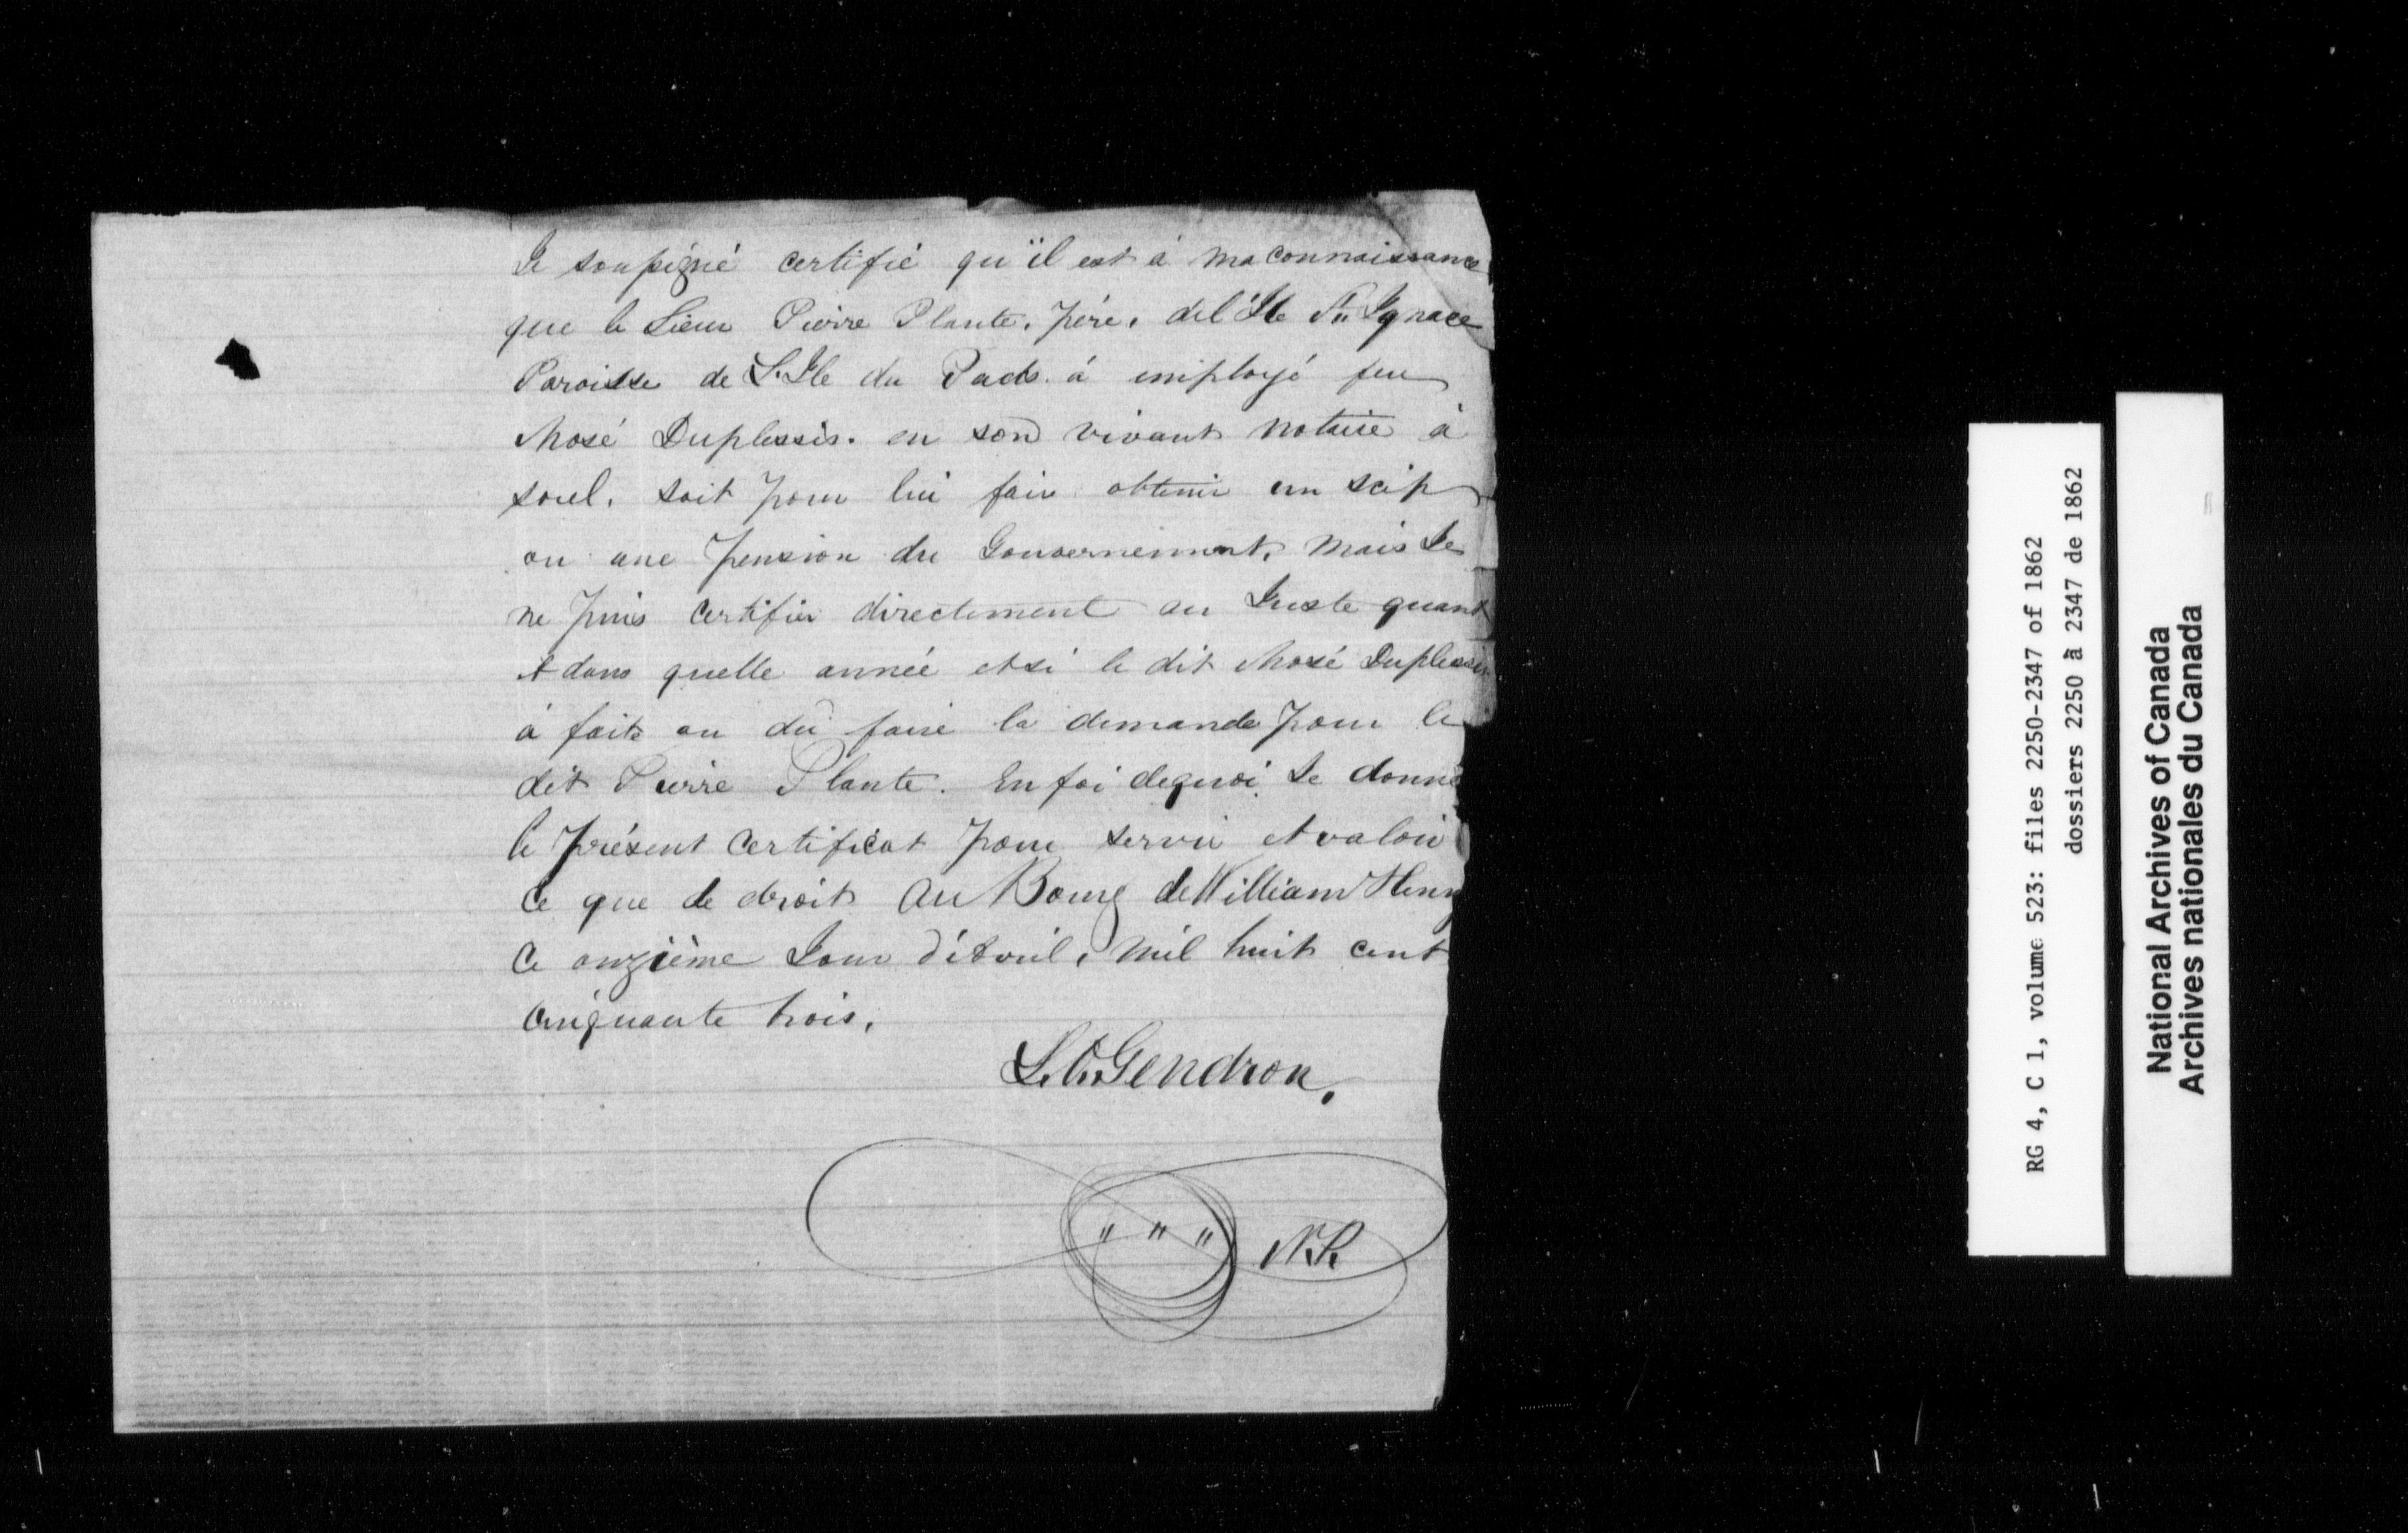 Je soussigné certifié qu'il est à ma connaissance
que le Sieur Pierre Plante, père, del'Ile St Ignace
Paroisse de L'Ile du Pads à employé feu
Mosé Duplessis. en son vivant notaire à
sorel. soit pour lui faire obtenir un scip
ou une pension du Gouvernement, mais Je
ne puis certifier directement au Juste quant
et dans quelle année et si le dit Mosé Duplessis
à faits ou dû faire la demande pour le
dit Pierre Plante. En foi dequoi Je donne
le présent certificat pour servir et valoir
ce que de droit Au Bourg de William Henry
ce onzième Jour d'Avril, mil huit cent
cinquante trois.
L. Gendron.
" " " N.P.
RG 4, C 1, volume 523: files 2250-2347 of 1862
dossiers 2250 à 2347 de 1862
National Archives of Canada
Archives nationales du Canada